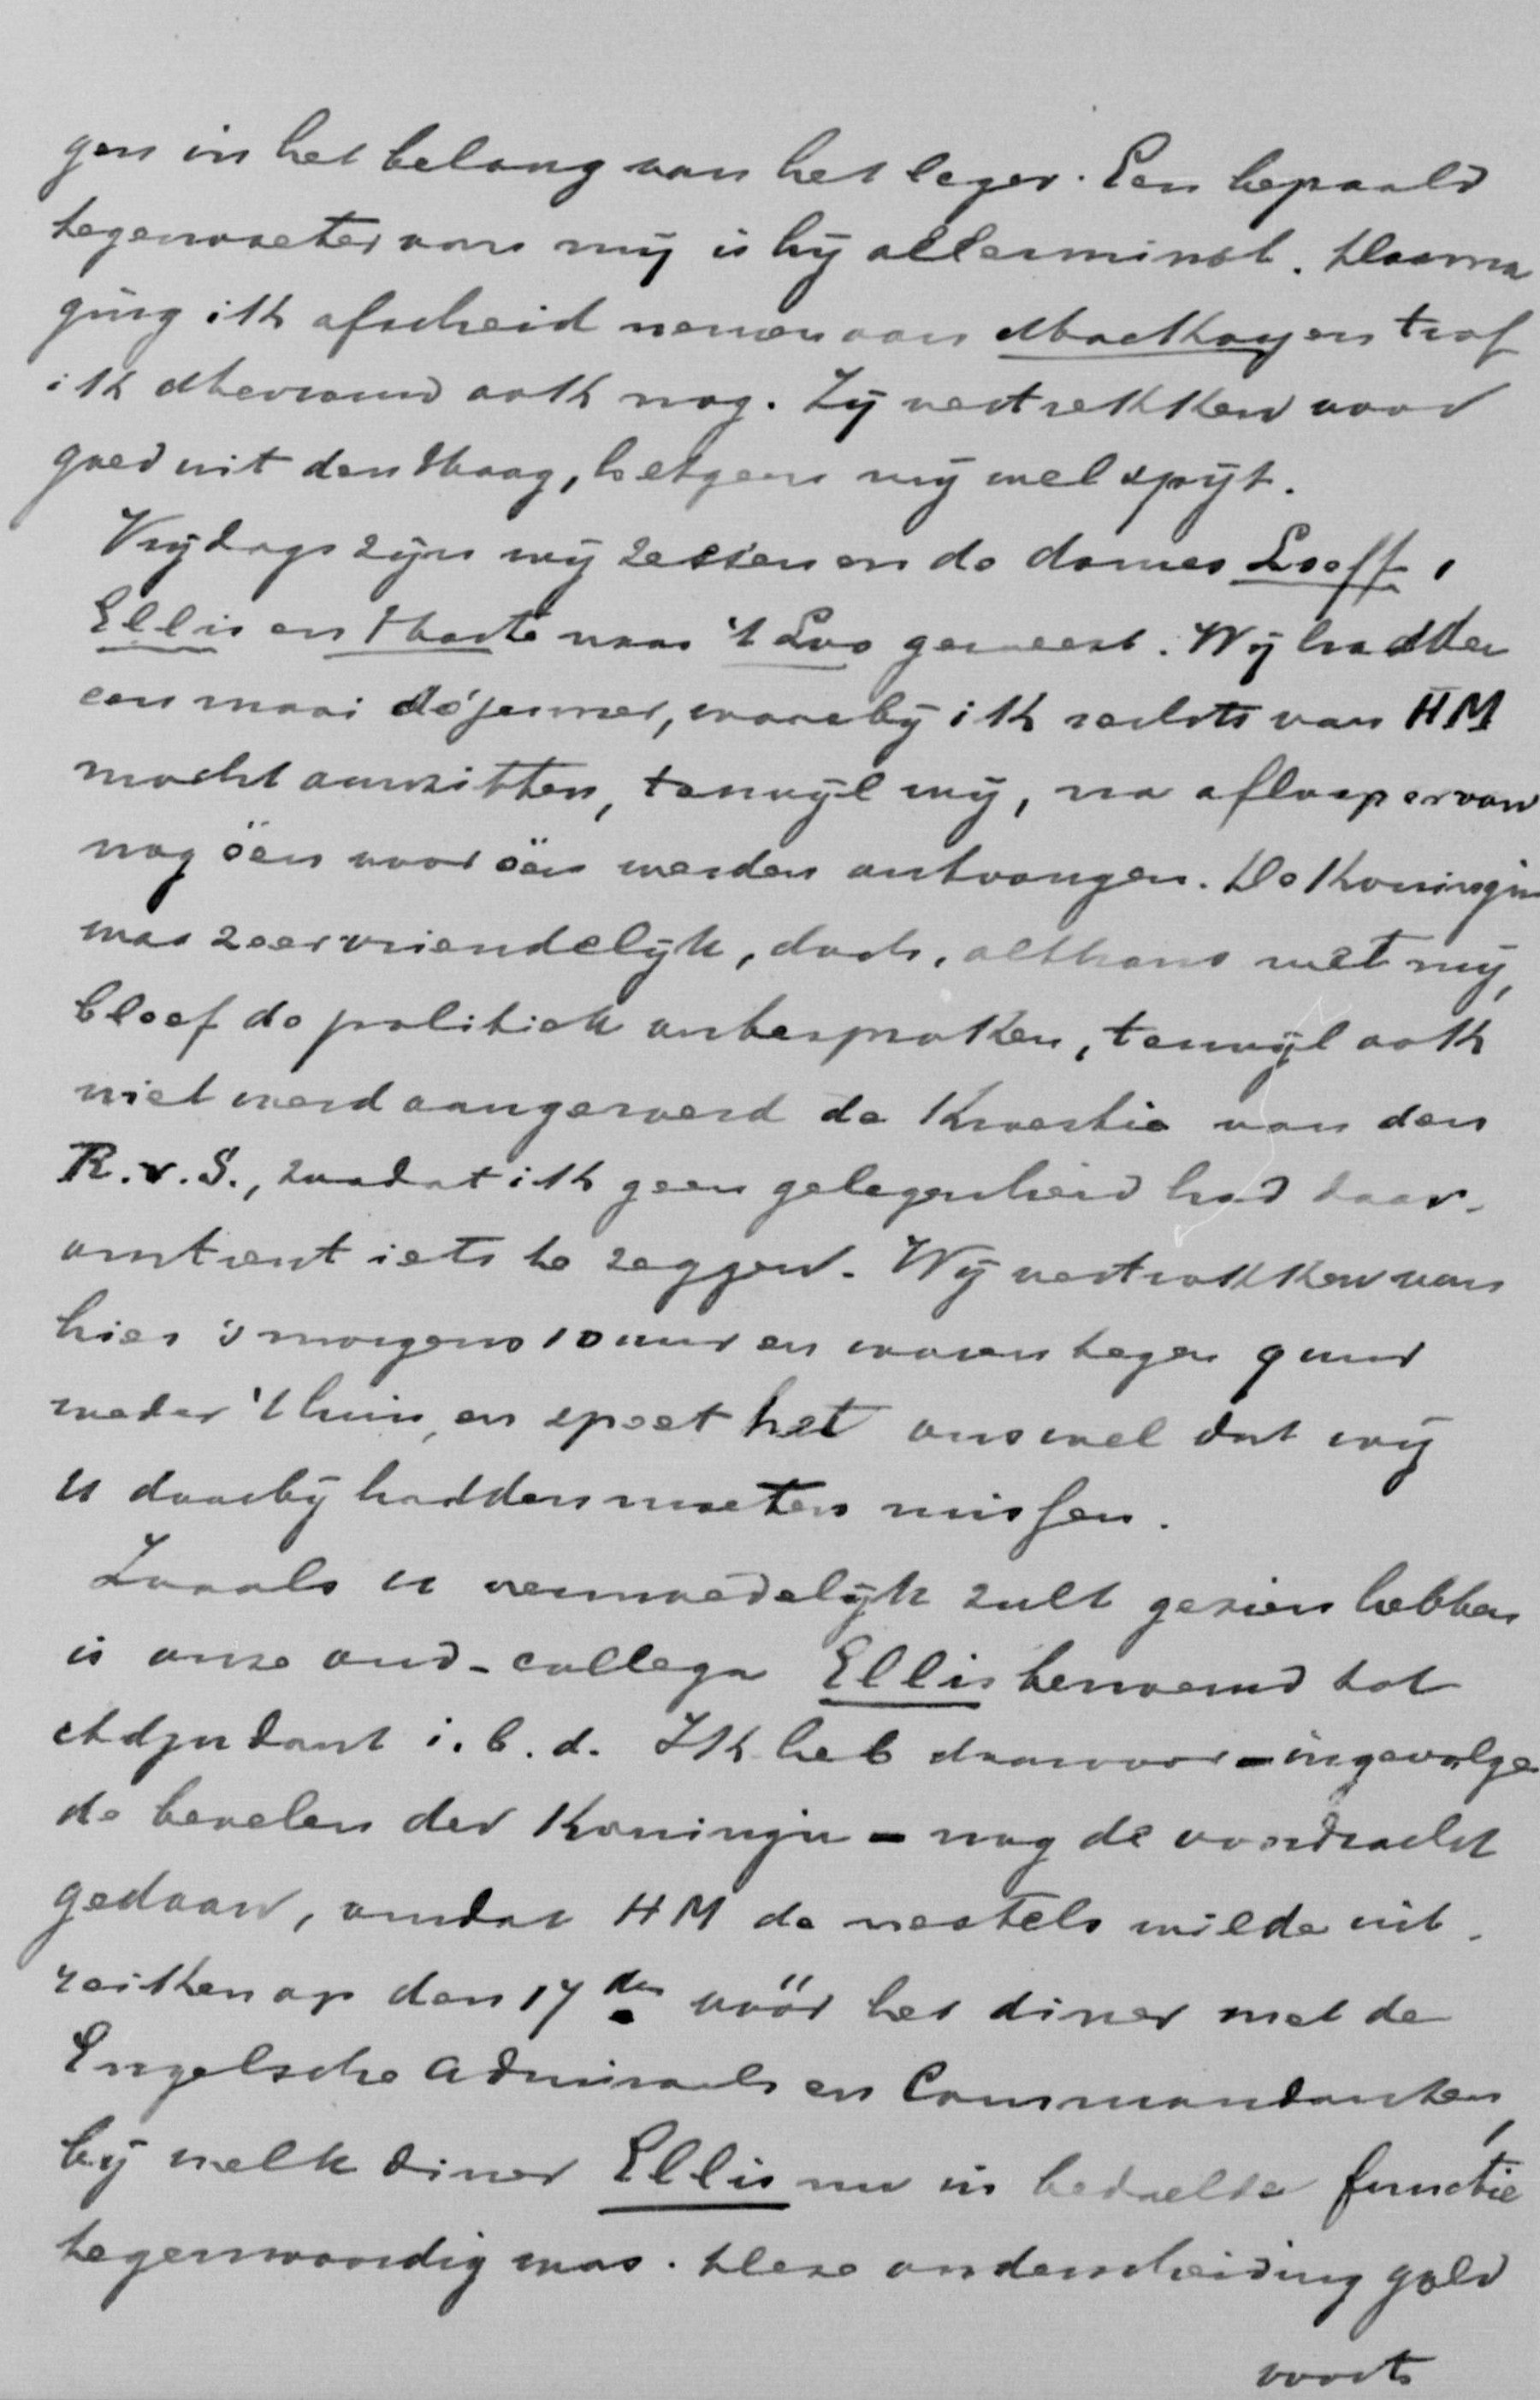 gen in het belang van het leger. Een bepaald
tegenvoeter van mij is hij allerminst. Daarna
ging ik afscheid nemen van Mackay en trof
ik Mevrouw ook nog. Zij vertrekken voor
goed uit den Haag, hetgeen mij wel spijt.
Vrijdags zijn wij zessen en de dames Loeff,
Ellis en Harte naar 't Loo geweest. Wij hadden
een mooi déjeuner, waarbij ik rechts van HM
mocht aanzitten, terwijl wij, na afloop ervan
nog één voor één werden ontvangen. De Koningin
was zeer vriendelijk, doch, althans met mij,
bleef de politiek onbesproken, terwijl ook
niet werd aangeroerd de kwestie van den
R.v.S., zoodat ik geen gelegenheid had daar-
omtrent iets te zeggen. Wij vertrokken van
hier 's morgens 10 uur en waren tegen 9 uur
weder 't huis, en speet het ons wel dat wij
U daarbij hadden moeten missen.
Zooals U vermoedelijk zult gezien hebben
is onze oud-collega Ellis benoemd tot
Adjudant i.b.d. Ik heb daarvoor - ingevolge
de bevelen der Koningin - nog de voordracht
gedaan, omdat HM de nestels wilde uit-
reiken op den 17den vóór het diner met de
Engelsche Admiraals en Commandanten,
bij welk diner Ellis nu in bedoelde functie
tegenwoordig was. Deze onderscheiding gold
voorts